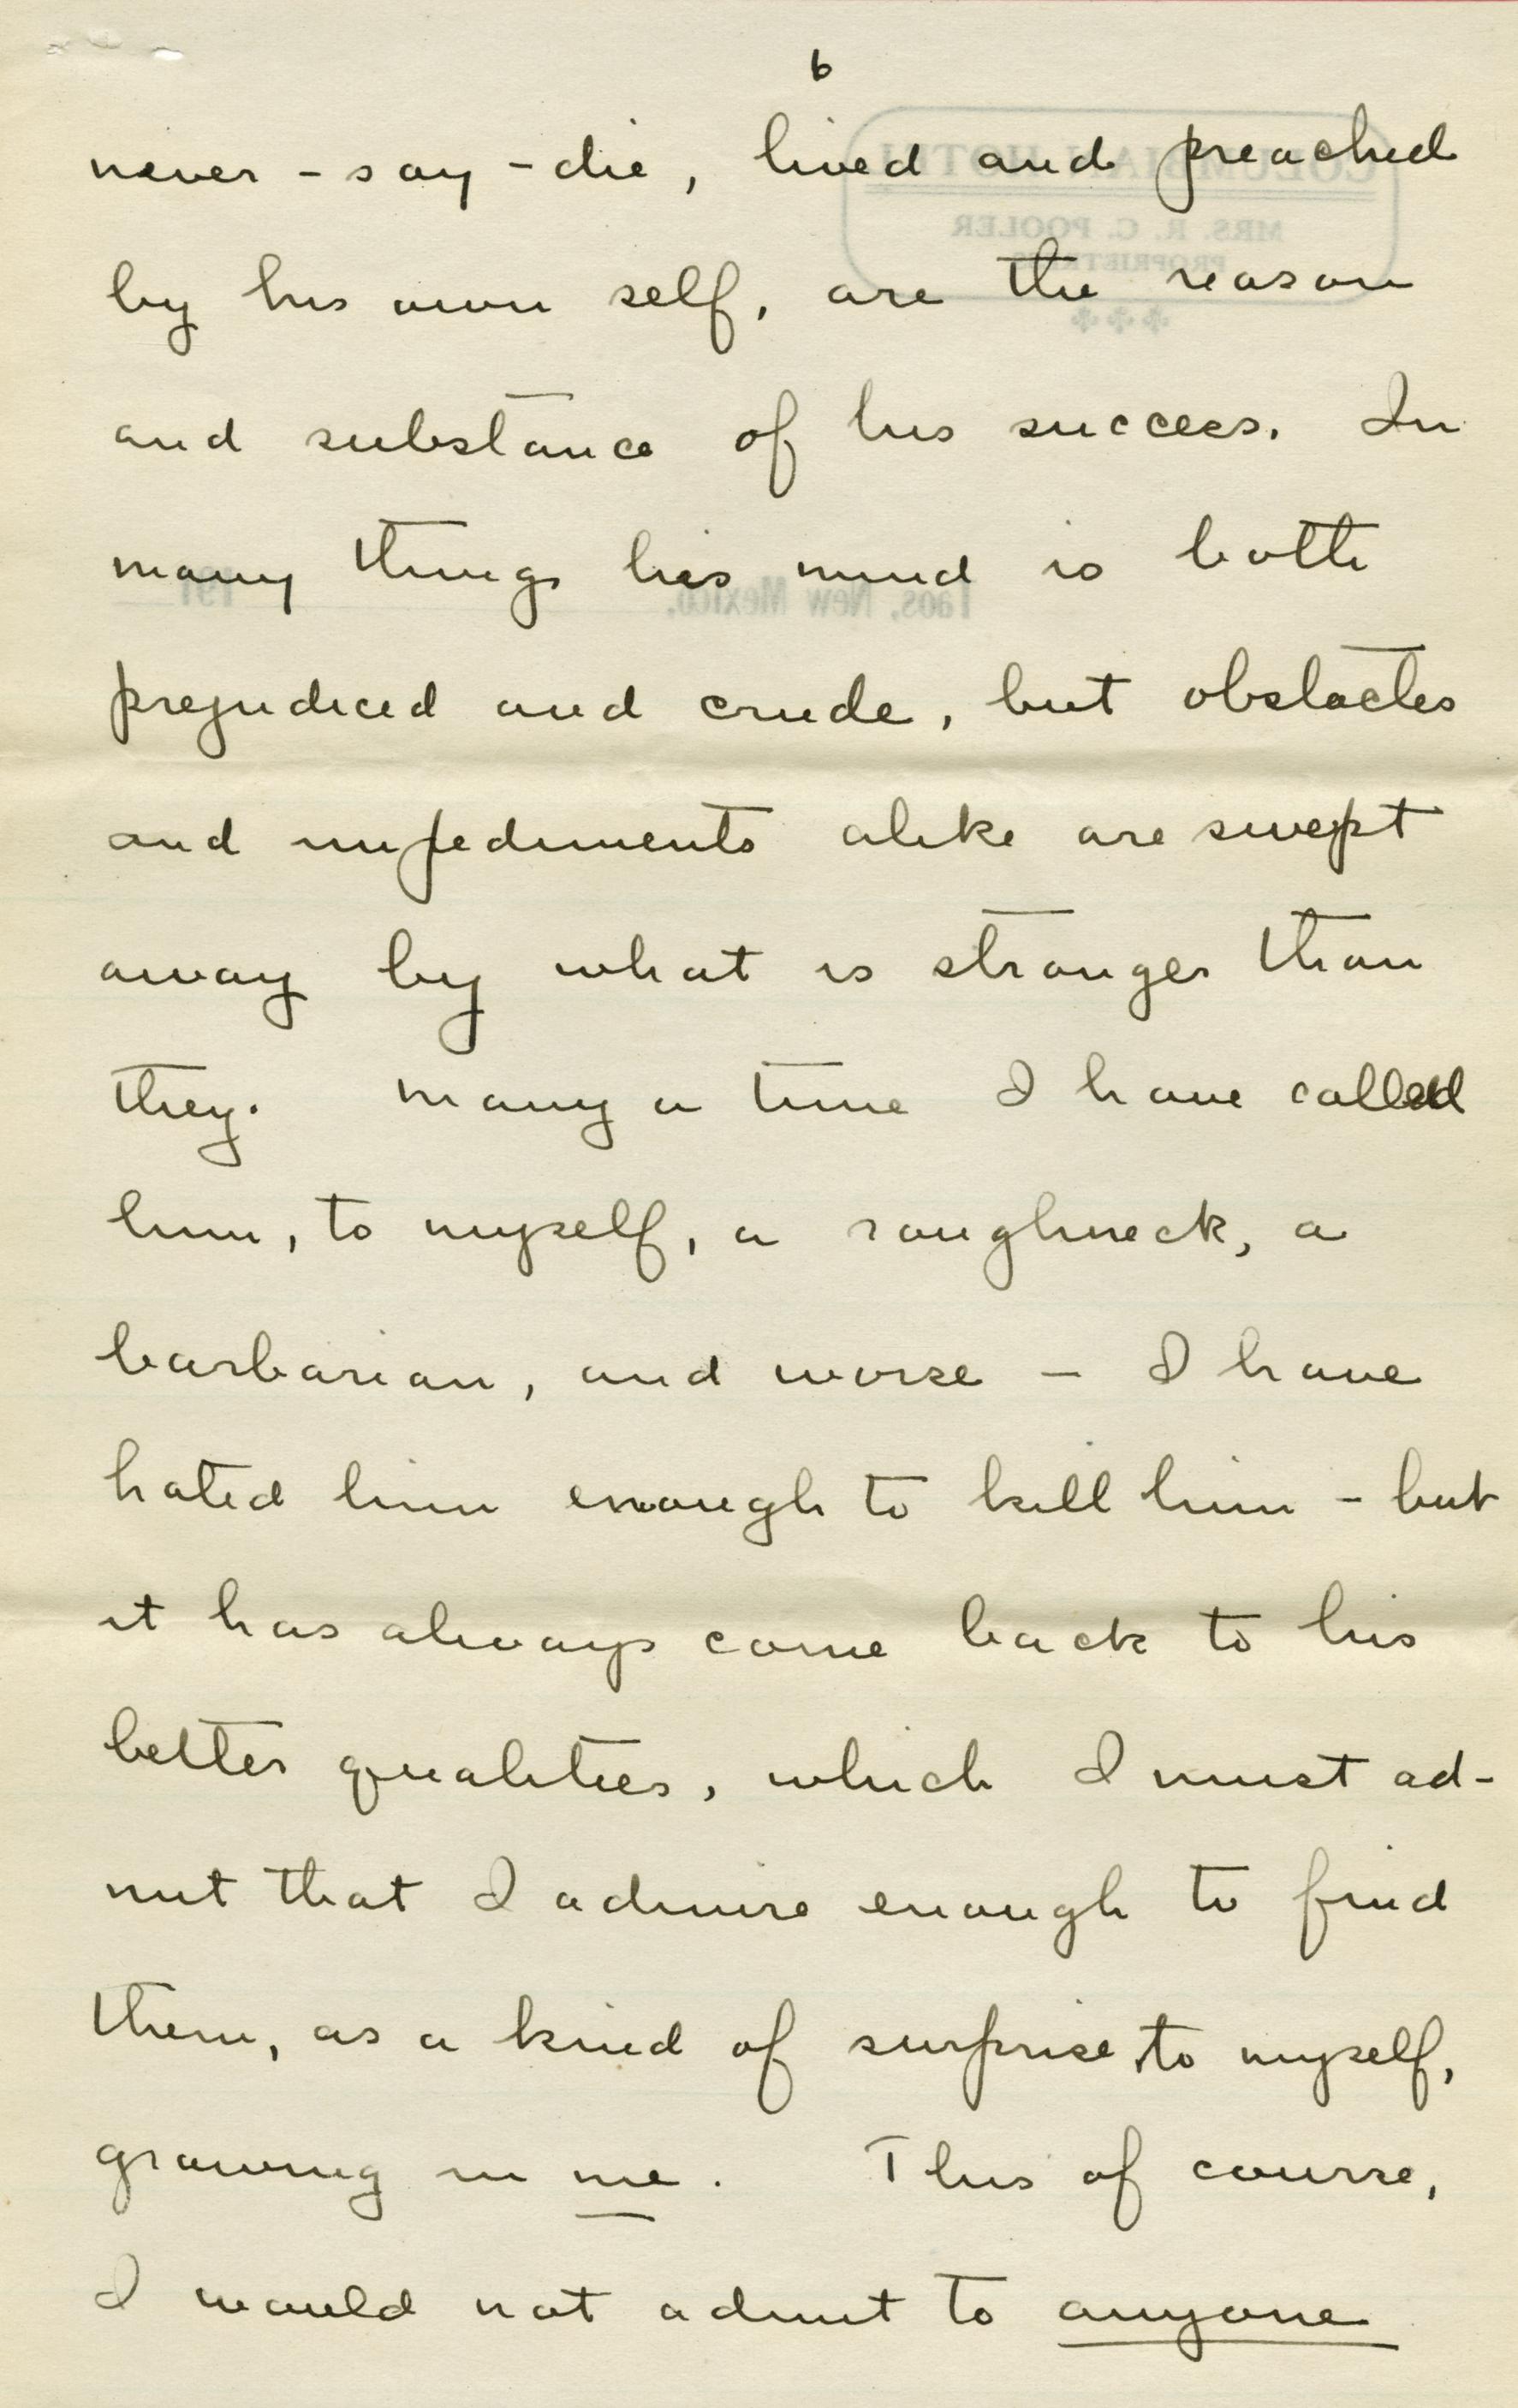 6
never-say-die, lived and preached
COLUMBIAN HOTEL
MRS. R. C. POOLER
PROPRIETRESS
by his own self, are the reason
and substance of his success. In
many things his mind is both
Taos, New Mexico, 191
prejudiced and crude, but obstacles
and impediments alike are swept
away by what is stronger than
they. Many a time I have called
him, to myself, a roughneck, a
barbarian, and worse - I have
hated him enough to kill him - but
it has always come back to his
better qualities, which I must ad-
mit that I admire enough to find
them, as a kind of surprise, to myself,
growing in me. This of course,
I would not admit to anyone